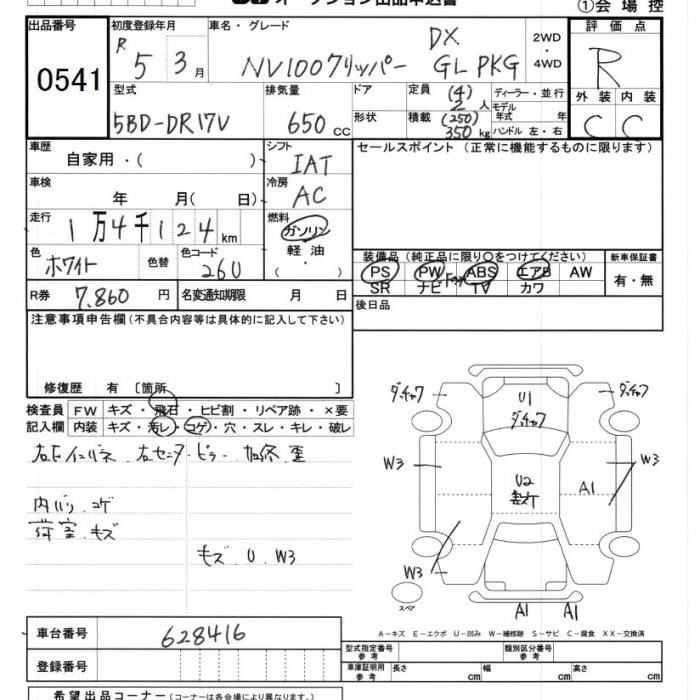 オークション出品申込書
①会場控
出品番号 初度登録年月 車名・グレード 評価点
R 5 3月 NV100クリッパー DX GL PKG 2WD・4WD R
0541
型式 排気量 ドア 定員 (4) 2人 ディーラー・並行 外装 内装
モデル年式 年
5BD-DR17V 650cc 形状 積載 (250) 350kg ハンドル 左・右 C C
車歴 シフト セールスポイント(正常に機能するものに限ります)
自家用・( ) IAT
車検 冷房
年 月( 日) AC
走行 燃料
1万4千124km ガソリン
軽油
・
( )
色 色替 色コード 装備品(純正品に限り○をつけてください) 新車保証書
ホワイト 26U PS PW ABS エアB AW 有・無
SR ナビ TV カワ
R券 7,860円 名変通知期限 月 日 後日品
注意事項申告欄(不具合内容等は具体的に記入して下さい)
修復歴 有 〔箇所 〕
検査員 FW キズ・飛石・ヒビ割・リペア跡・×要
記入欄 内装 キズ・汚レ・コゲ・穴・スレ・キレ・破レ
右Fインパネ 右センターピラー 加修 歪
内バリ コゲ
荷室 キズ
キズ U W3
ダッチャク
U1
ダッチャク
ダッチャク
W3
U2
W3
A1
W3
スペア
A1 A1
A-キズ E-エクボ U-凹み W-補修跡 S-サビ C-腐食 XX-交換済
車台番号 628416 型式指定番号 参考 類別区分番号 参考
登録番号 車庫証明用 参考 長さ cm 幅 cm 高さ cm
希望出品コーナー(コーナーは各会場により異なります。)